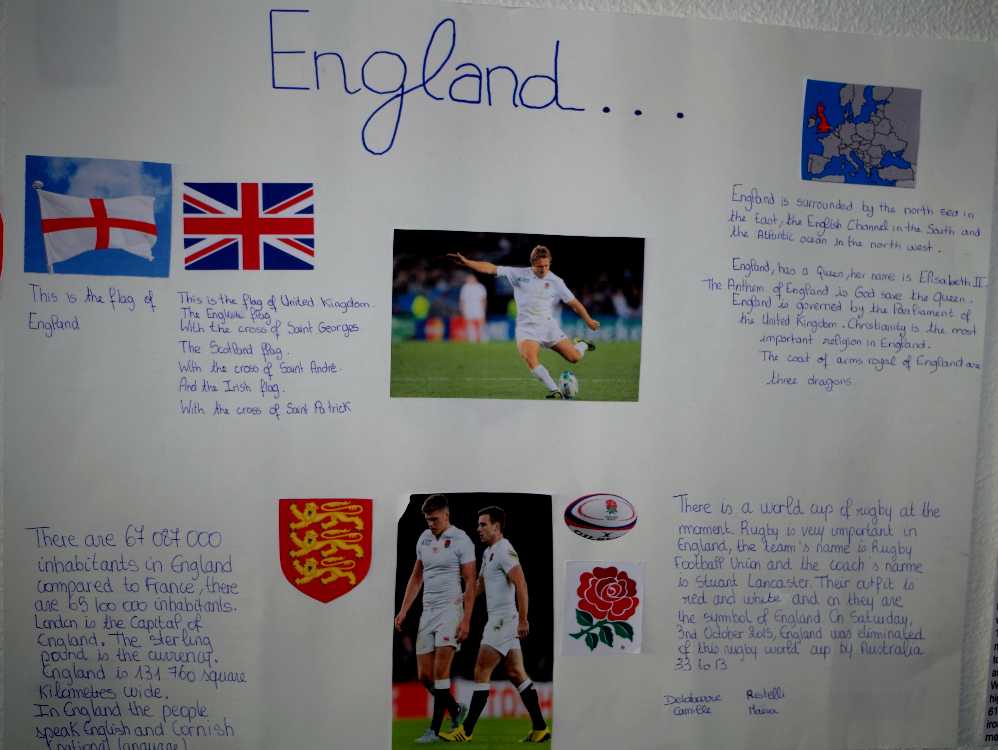 England...
This is the flag of
England
This is the flag of United Kingdom.
The English flag
With the cross of Saint Georges
The Scotland flag.
With the cross of Saint André.
And the Irish flag.
With the cross of Saint Patrick
England is surrounded by the north sea in
the East, the English Channel in the South and
the Atlantic ocean in the north west.
England, has a Queen, her name is Elisabeth II
The Anthem of England is God save the Queen.
England is governed by the Parliament of
the United Kingdom. Christianity is the most
important religion in England.
The coat of arms royal of England are
three dragons.
There are 67 087 000
inhabitants in England
compared to France, there
are 65 100 000 inhabitants.
London is the Capital of
England. The sterling
pound is the currency.
England is 131 760 square
Kilometres wide.
In England the people
speak English and Cornish
(national language)
There is a world cup of rugby at the
moment. Rugby is very important in
England, the team's name is Rugby
Football Union and the coach's name
is Stuart Lancaster. Their outfit is
red and white and on they are
the symbol of England. On Saturday,
3nd October 2015, England was eliminated
of this rugby world cup by Australia
33 to 13
Camille